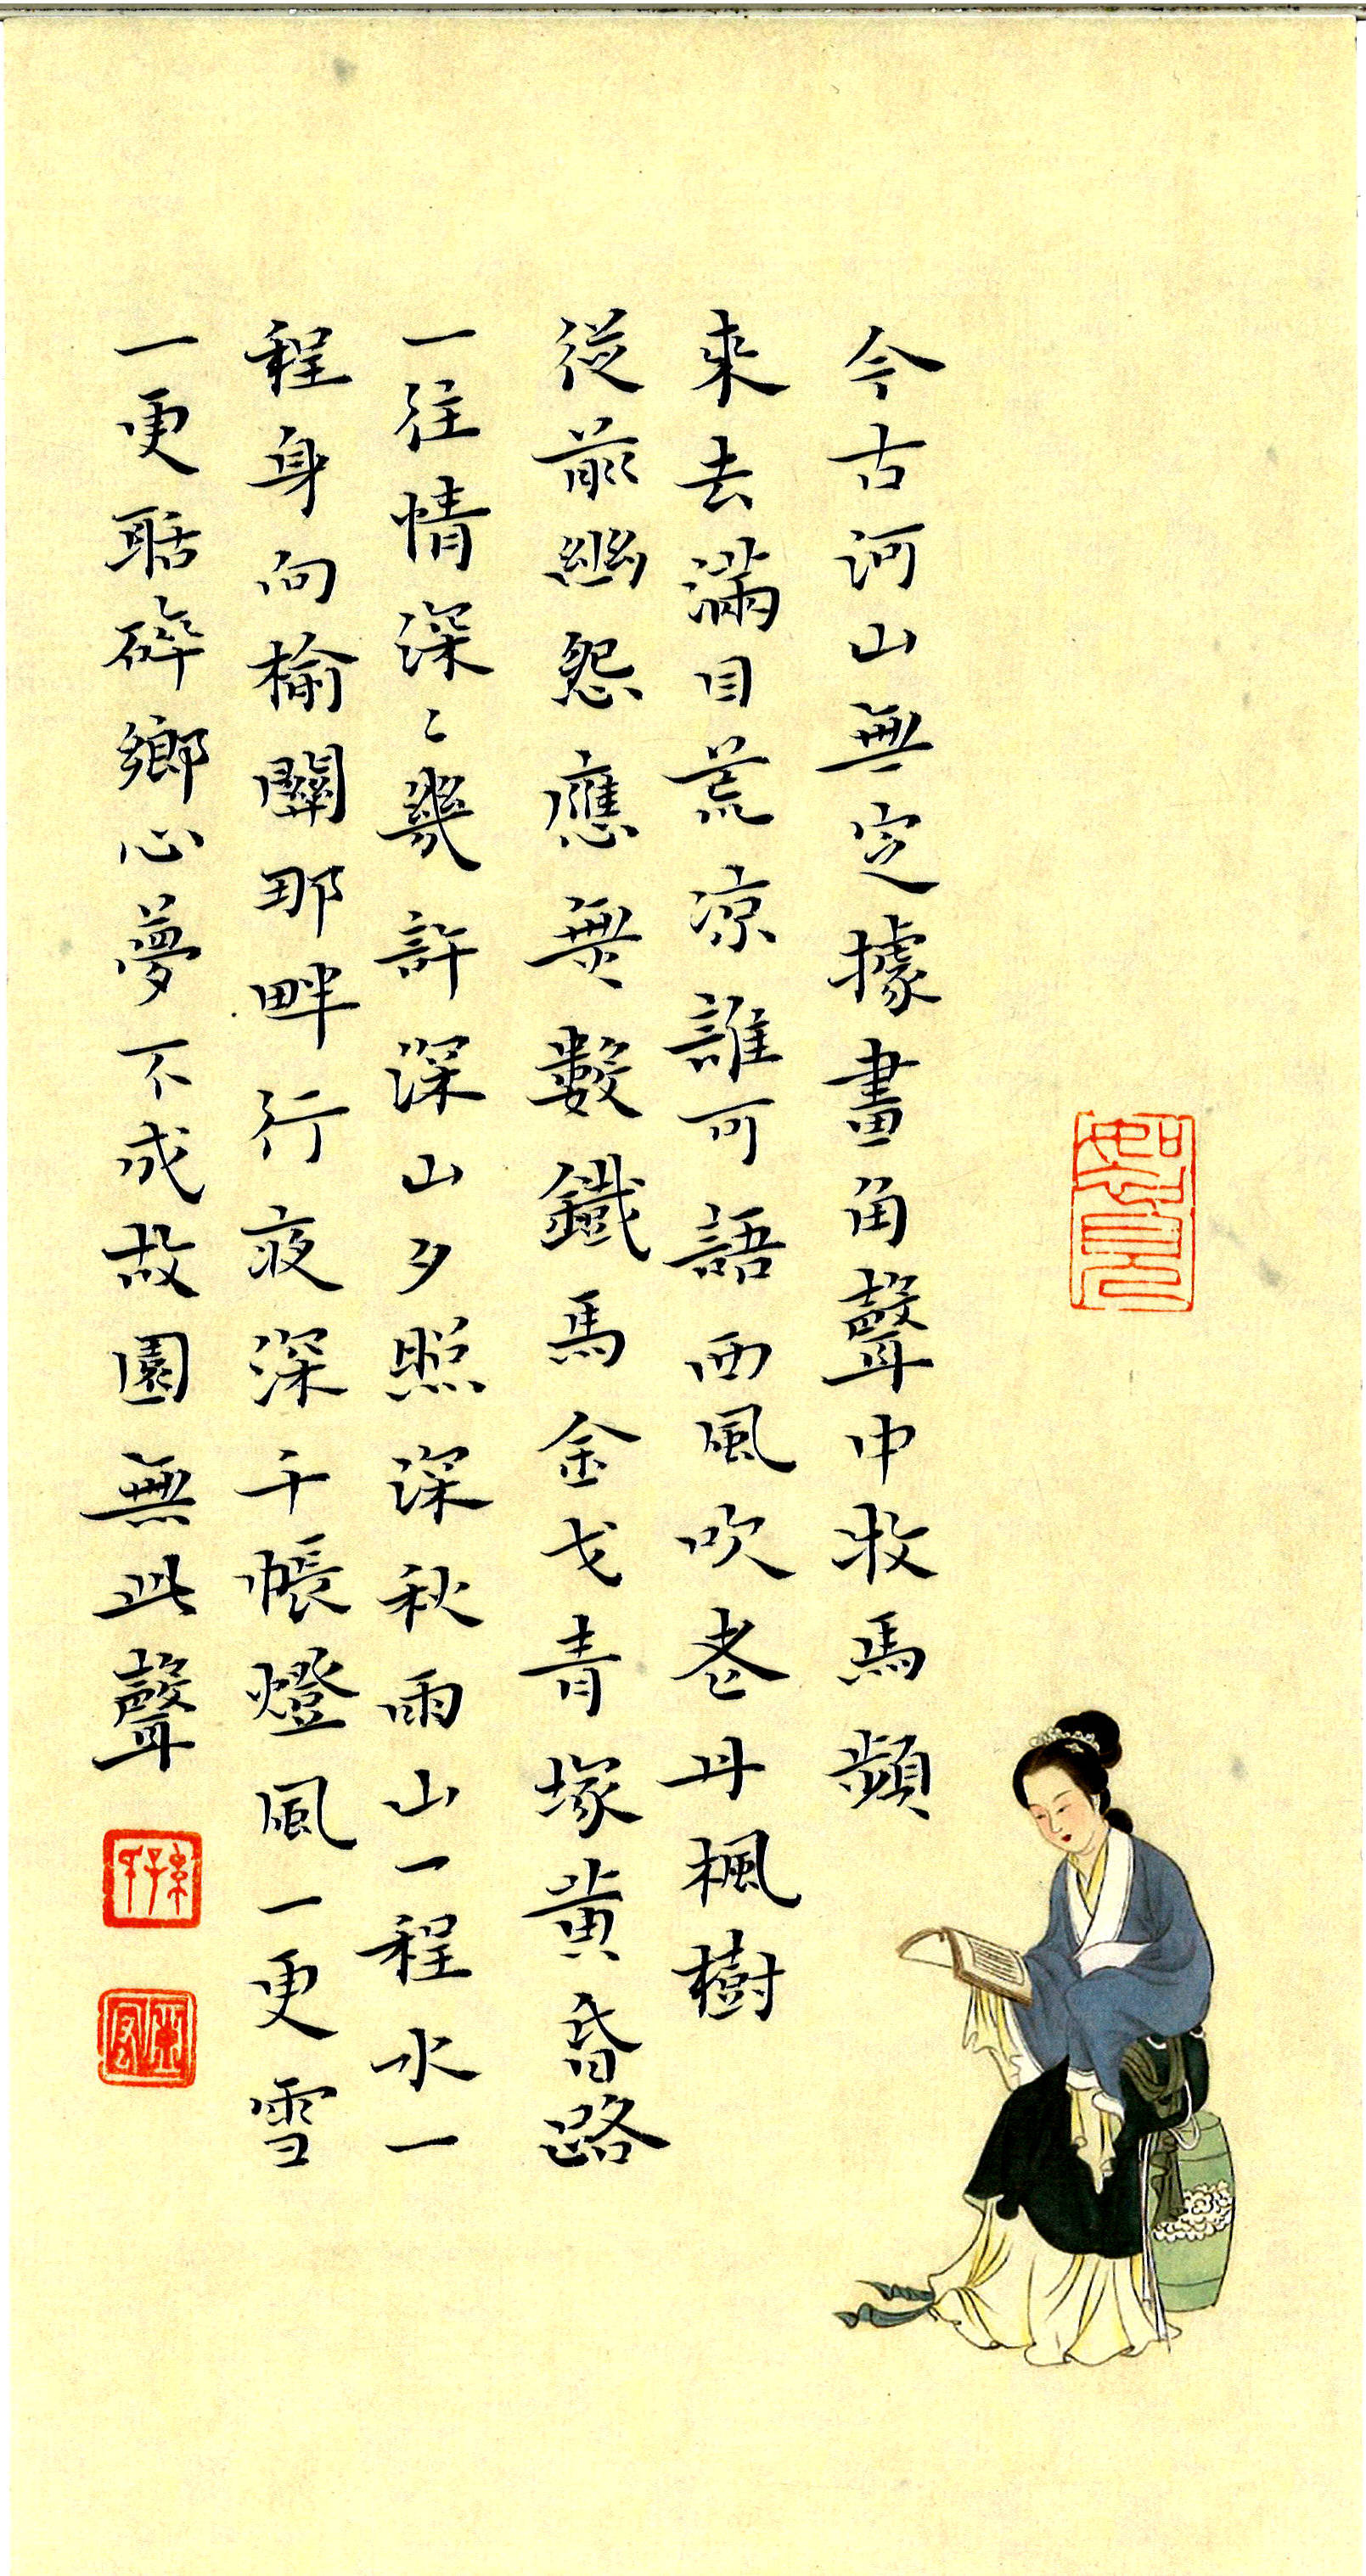 今古河山無定據畫角聲中牧馬頻
來去滿目荒涼誰可語西風吹老丹楓樹
從前幽怨應無數鐵馬金戈青塚黃昏路
一往情深〻幾許深山夕照深秋雨山一程水一
程身向榆關那畔行夜深千帳燈風一更雪
一更聒碎鄉心夢不成故園無此聲